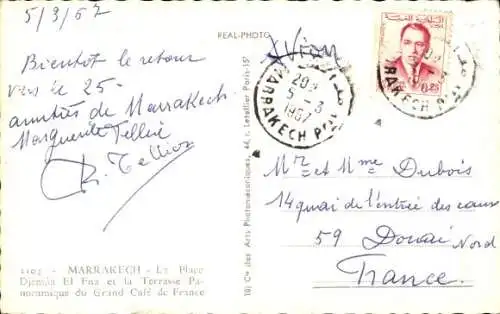 5/3/67
Bientôt le retour
vers le 25-
amitiés de Marrakech
Marguerite Tellier
R. Tellier
1103 - MARRAKECH - La Place
Djemâa El Fna et la Terrasse Pa-
noramique du Grand Café de France
REAL-PHOTO
Cie des Arts Photomécaniques, 44, r. Letellier Paris-15e
Avion
MARRAKECH
20H
5-3
1967
MARRAKECH
0,25
Mr et Mme Dubois
14 quai de l'entrée des eaux
59 Douai Nord
France.